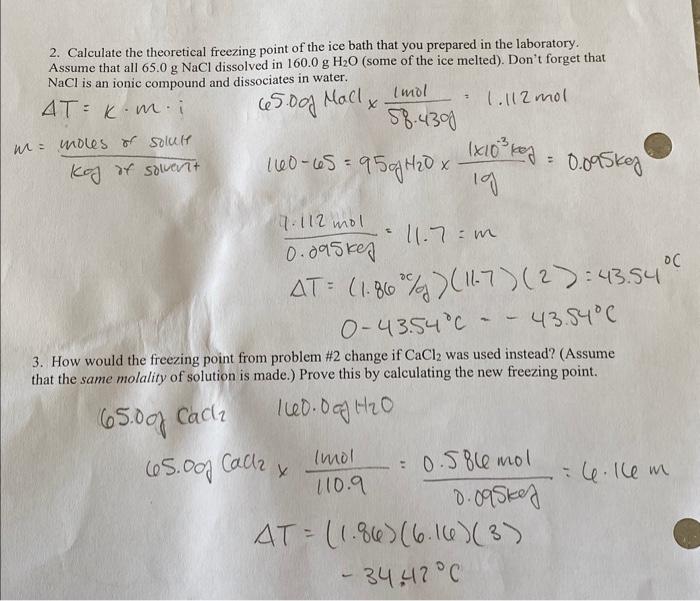 2. Calculate the theoretical freezing point of the ice bath that you prepared in the laboratory.
Assume that all 65.0 g NaCl dissolved in 160.0 g H₂O (some of the ice melted). Don't forget that
NaCl is an ionic compound and dissociates in water.
ΔT = K · m · i
65.00g NaCl x 1mol / 58.439g = 1.112 mol
m = moles of solute / Kg of solvent
160-65 = 95g H₂O x 1x10⁻³ kg / 1g = 0.095kg
1.112 mol / 0.095kg = 11.7 = m
ΔT = (1.86 °C/g)(11.7)(2) = 43.54 °C
0-43.54°C = - 43.54°C
3. How would the freezing point from problem #2 change if CaCl₂ was used instead? (Assume
that the same molality of solution is made.) Prove this by calculating the new freezing point.
65.0g CaCl₂ 160.0g H₂O
65.00g CaCl₂ x 1mol / 110.9 = 0.586 mol / 0.095kg = 6.16 m
ΔT = (1.86)(6.16)(3)
- 34.42°C